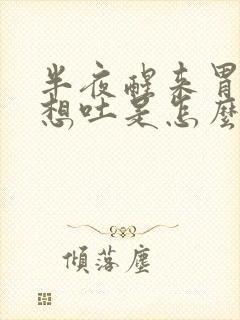 半夜醒来胃
想吐是怎麼
傾落塵